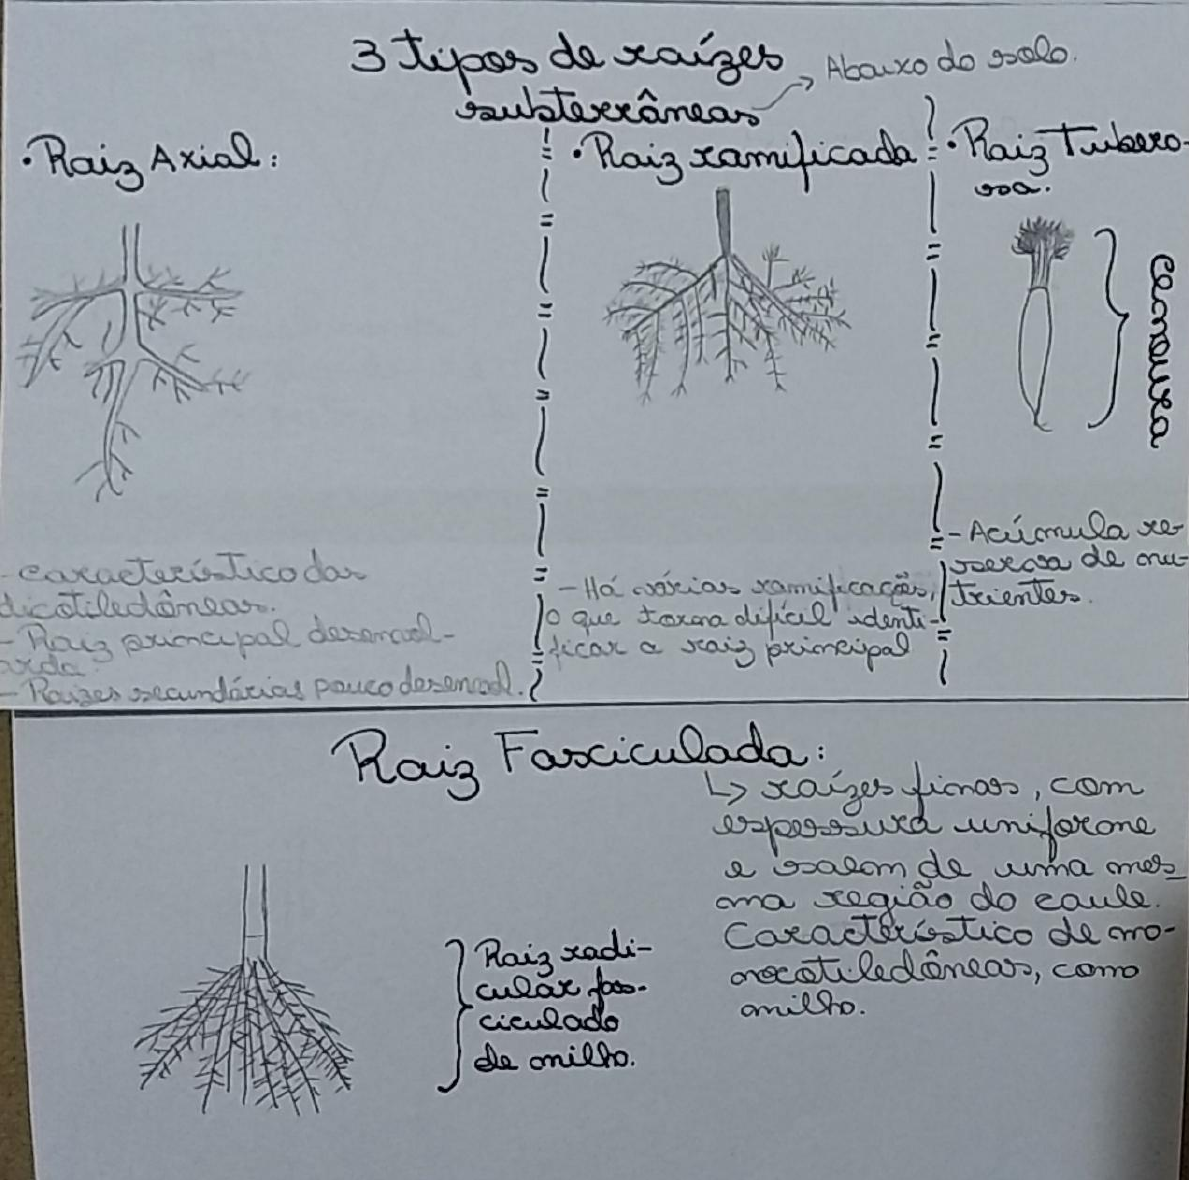 3 tipos de raízes
subterrâneas → Abaixo do solo.
• Raiz Axial:
- Característico das
dicotiledôneas.
- Raiz principal desenvol-
vida
- Raízes secundárias pouco desenvol.
• Raiz ramificada
- Há várias ramificações,
o que torna difícil identi-
ficar a raiz principal
• Raiz Tubero-
sa.
cenoura
- Acúmula re-
serva de nu-
trientes.
Raiz Fasciculada:
↳ raízes finas, com
espessura uniforme
e saem de uma mes
ma região do caule.
Característico de mo-
nocotiledôneas, como
milho.
Raiz radi-
cular fas-
ciculado
de milho.